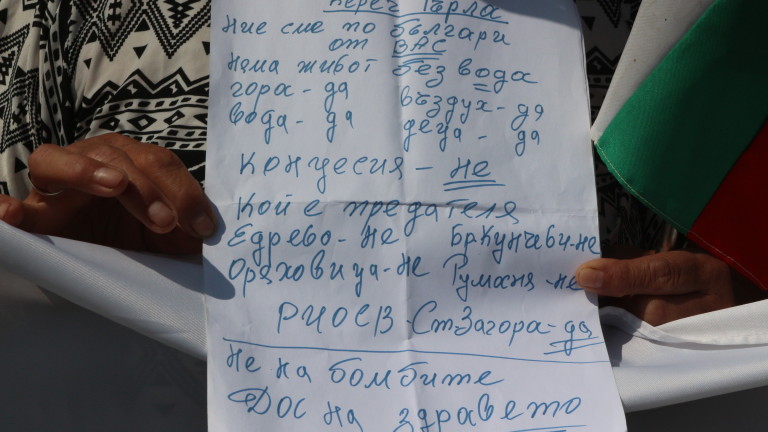 Ние сме по българи
от ВАС
Няма живот без вода
гора - да въздух - да
вода - да деца - да
Концесия - не
Кой е предателя
Едрево - не Бр Кунчеви - не
Ораховица - не Румания - не
РИОСВ - Ст Загора - да
Не на бомбите
на здравето